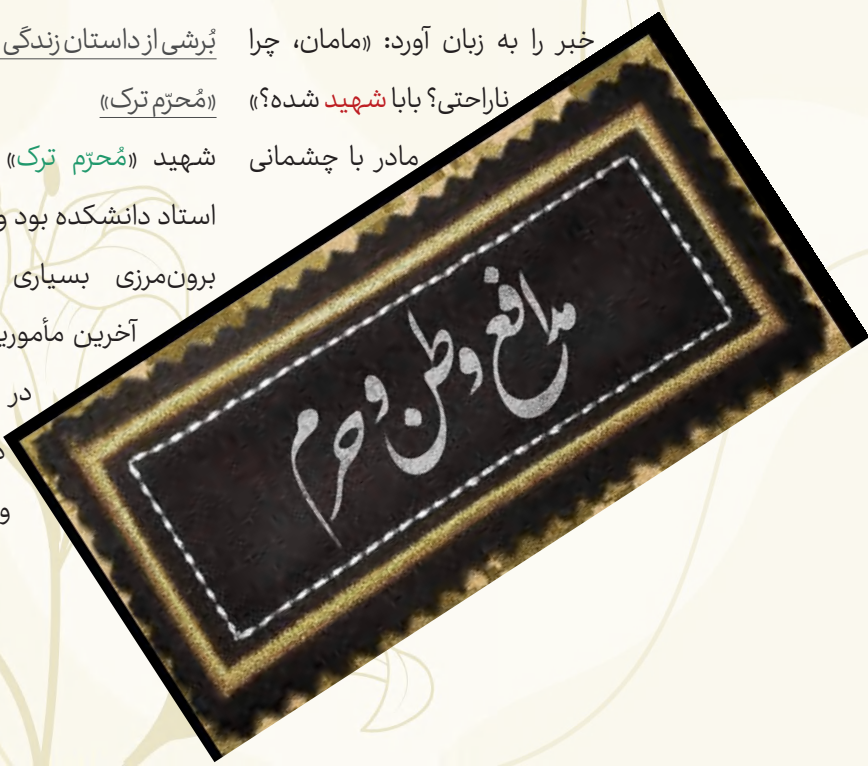 بُرشی از داستان زندگی
«مُحرّم ترک»
شهید «مُحرّم ترک»
استاد دانشکده بود و
برون‌مرزی بسیاری
آخرین
در
و
خبر را به زبان آورد: «مامان، چرا
ناراحتی؟ بابا شهید شده؟»
مادر با چشمانی
مدافع وطن و حرم